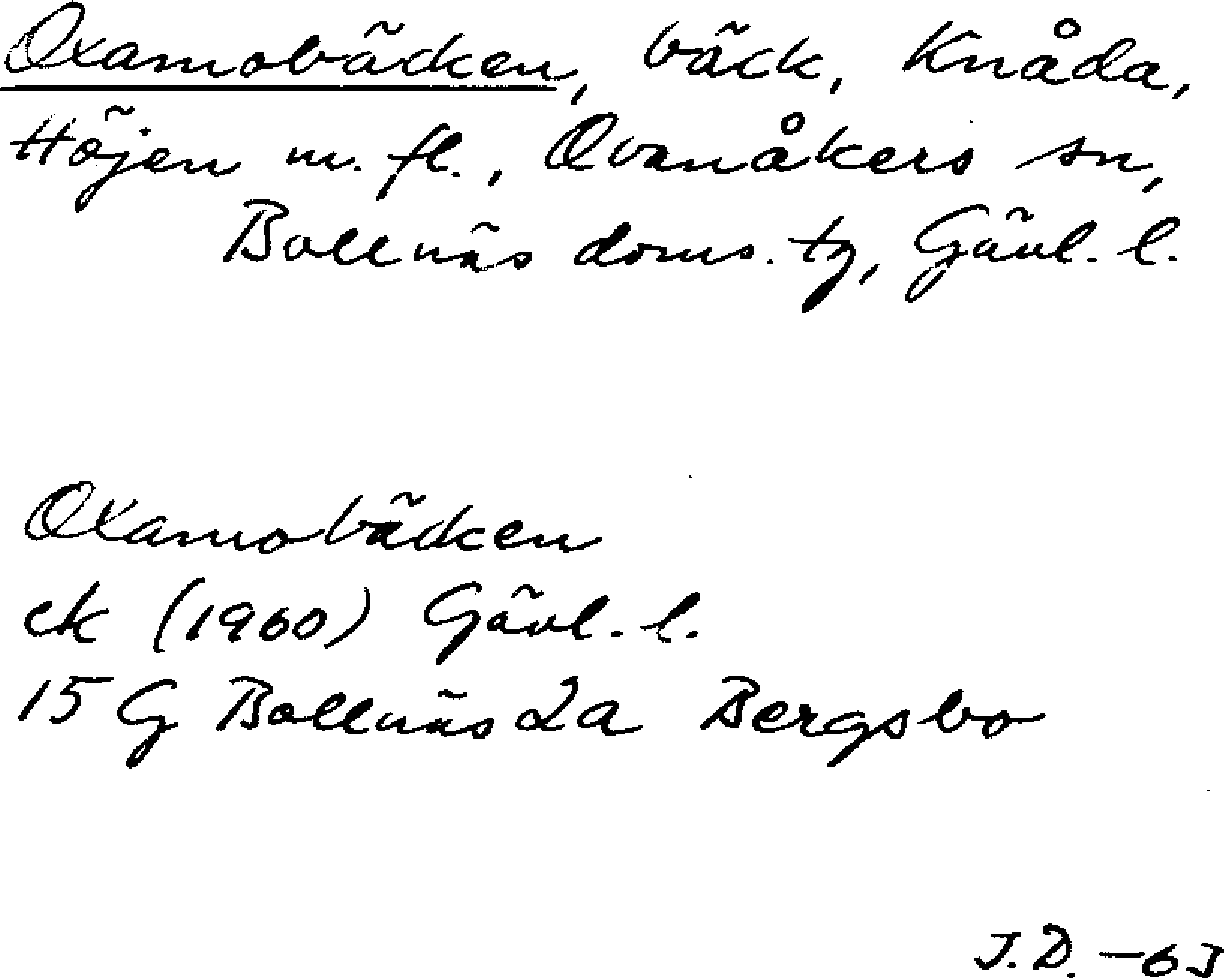 Oxamobäcken, bäck, Knåda,
Höjen m. fl., Ovanåkers sn,
Bollnäs doms. tg, Gävl. l.
Oxamobäcken
ek (1960) Gävl. l.
15 G Bollnäs 2a Bergsbo
J.D. -63